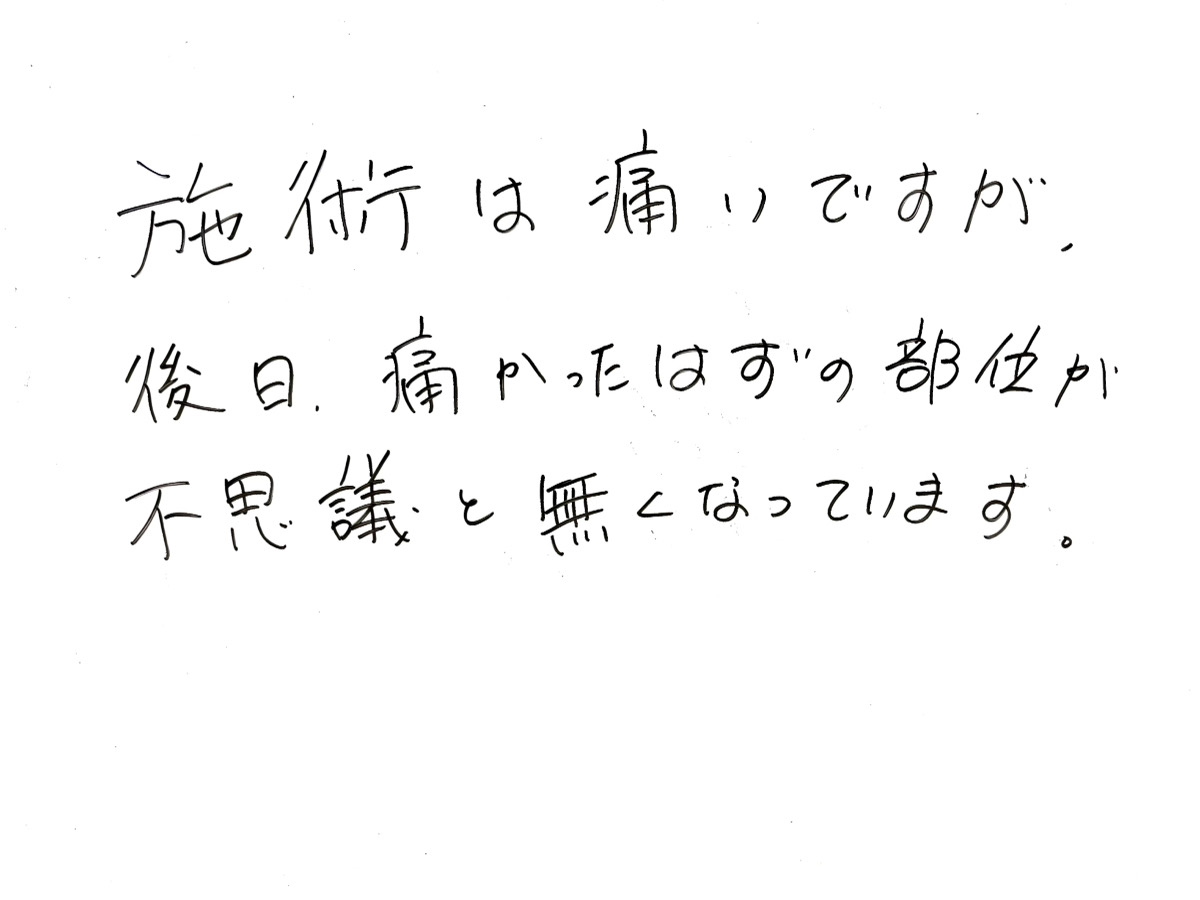 施術は痛いですが、
後日、痛かったはずの部位が
不思議と無くなっています。